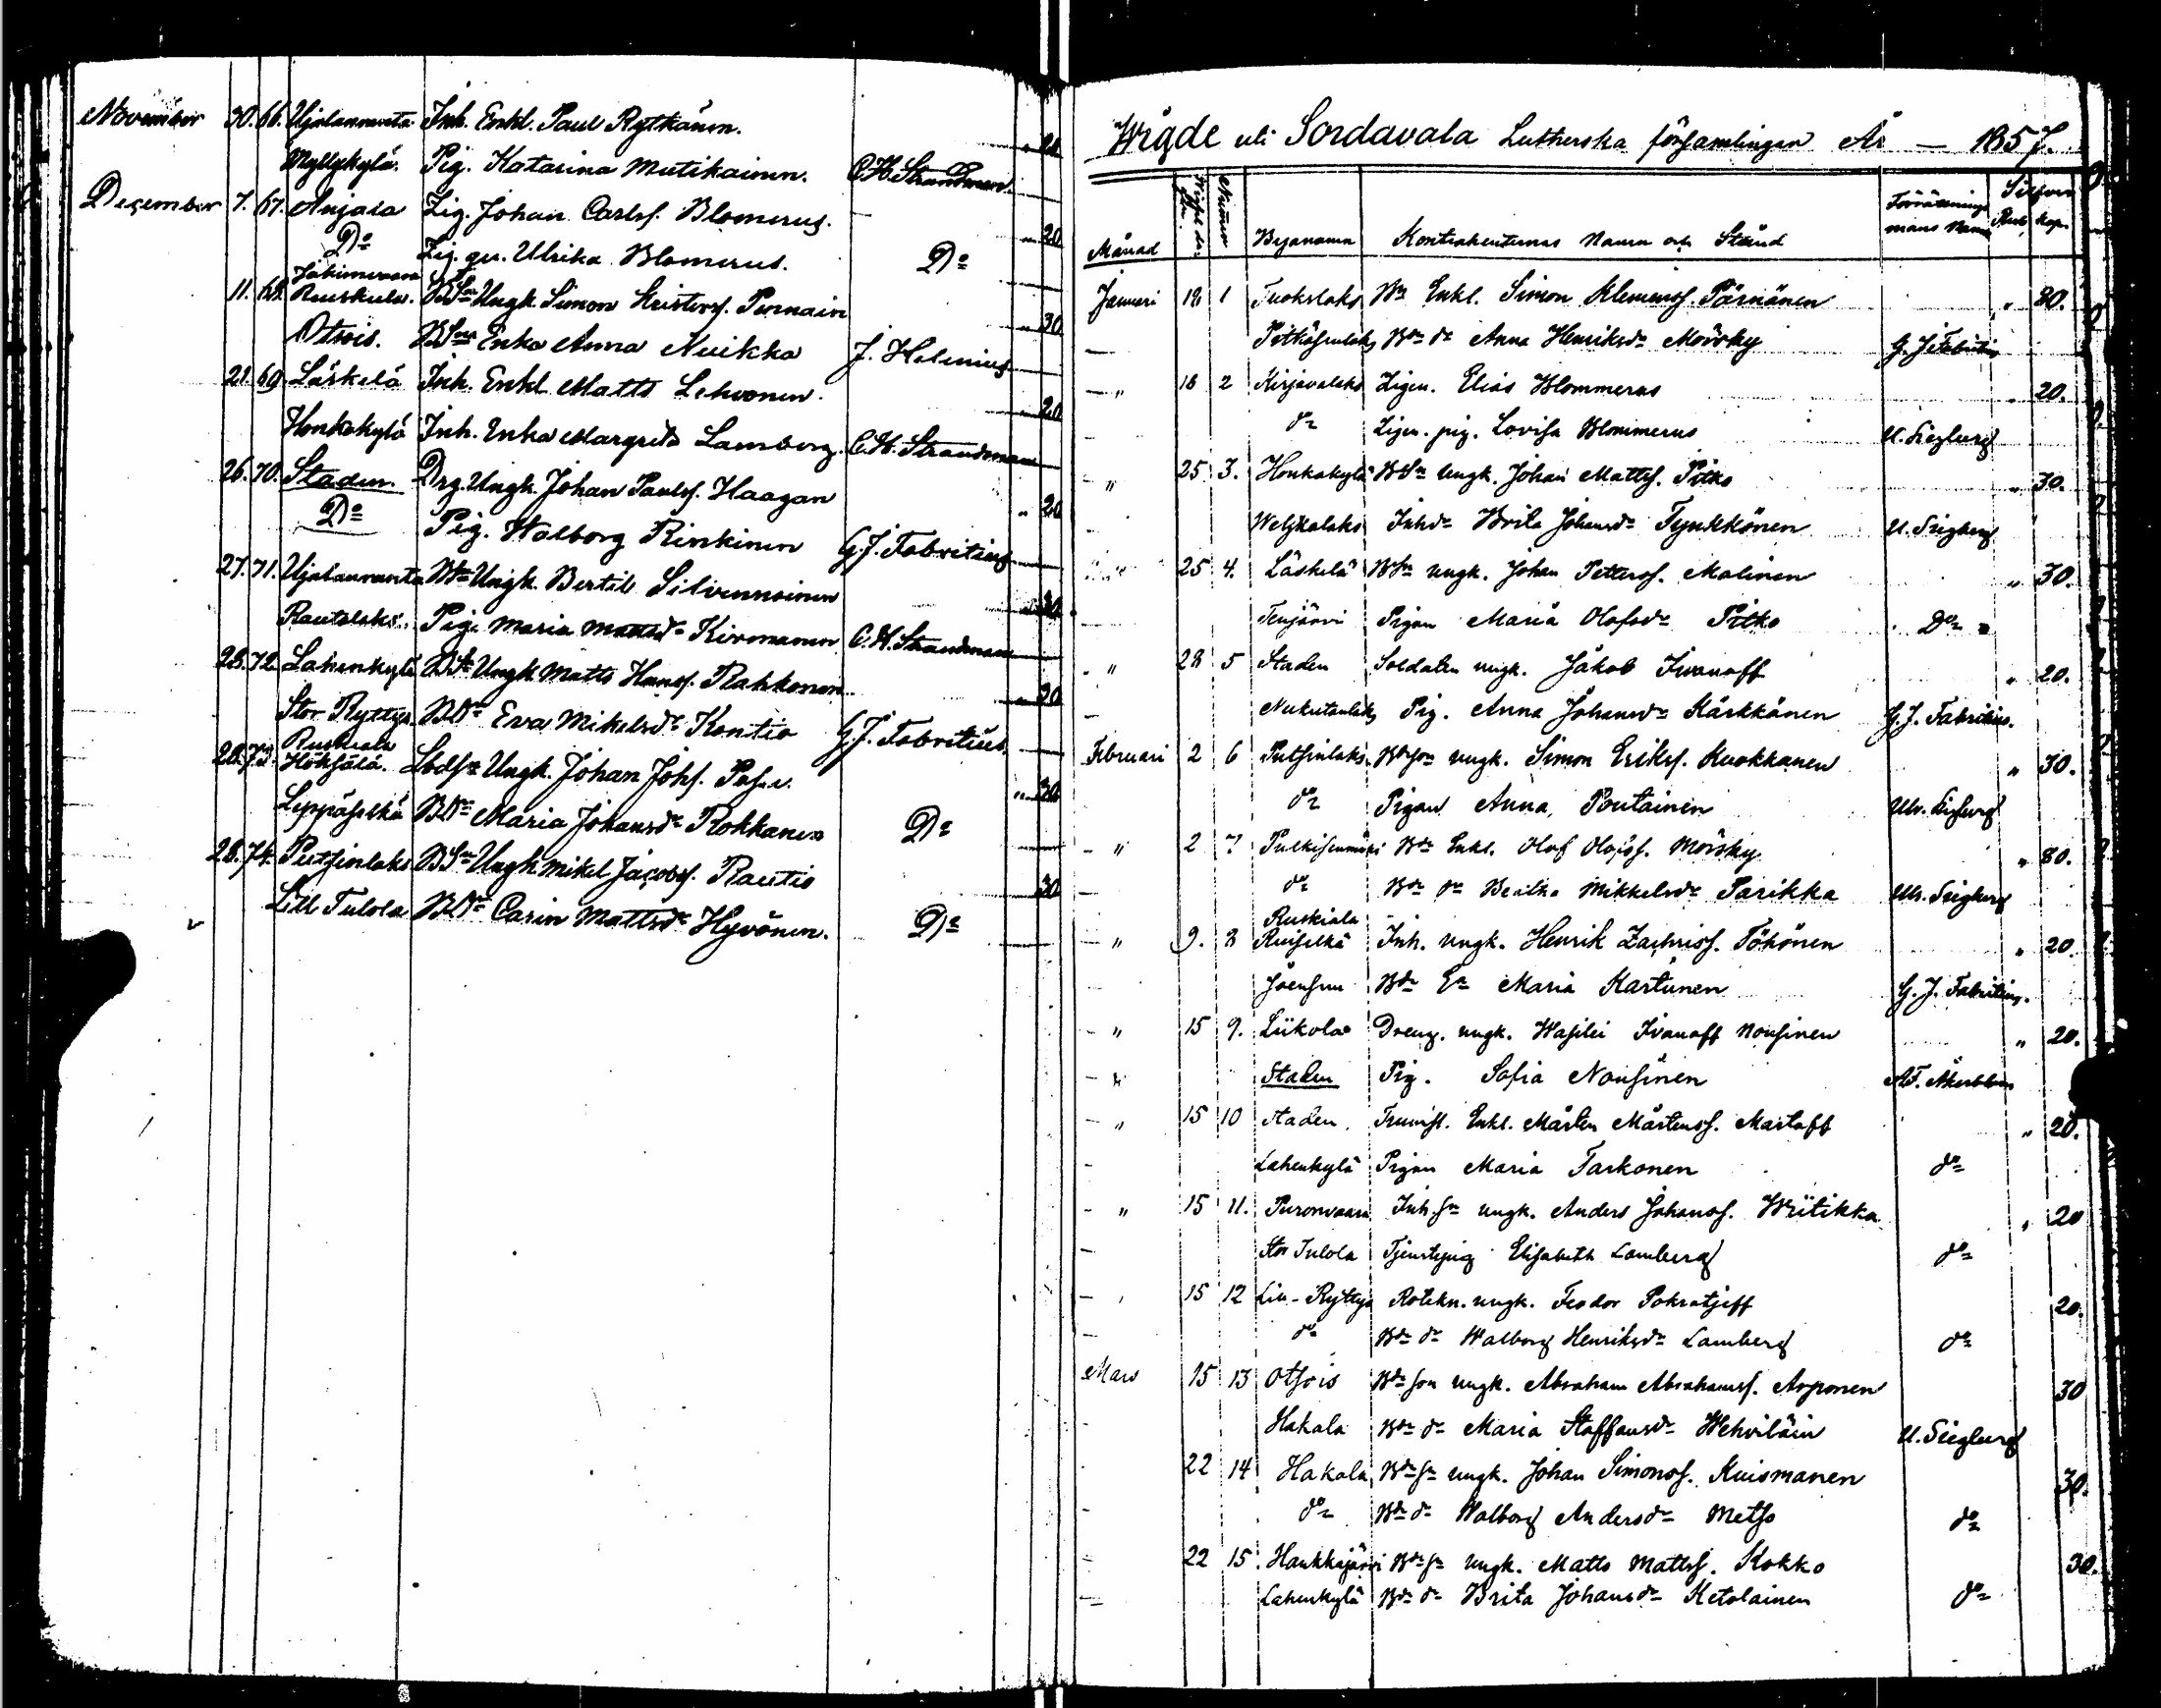 November 30. 66. Ujalanranta. Inh. Enkl. Paul Rytkäinen. " 20
Myllykylä. Pig. Katarina Mutikainen. C. H. Strandman.
December 7. 67. Anjala Zig. Johan Carlsf. Blomerus. " 20
Do Zig. qv. Ulrika Blomerus. Do
11. 68. Ruskiala. BSn Ungk. Simon Kristersf. Pernain " 30
Otsois. Enka Anna Nuikka J. Helenius
21. 69. Läskelä Inh. Enkl. Matts Lehvonen. " 20
Honkakylä Inh. Enka Margreta Lamberg. C. H. Strandman
26. 70. Staden. Drg. Ungk. Johan Paulsf. Haagan " 20
Do Pig. Walborg Rinkinen G. J. Fabritius
27. 71. Ujalanranta Ungk. Bertil Silvennoinen " 30
Rautalaks. Pig. Maria Mattsdr Kirmanen C. H. Strandman
28. 72. Lahenkylä BSn Ungk. Matts Hansf. Rahkonen " 20
Stor Ryttys. BDr Eva Mikelsdr Kontio G. J. Fabritius
Ruskiala
28. 73. Ungk. Johan Johsf. " 30
Leppäselkä BDr Maria Johansdr Rokkanen Do
28. 74. Putsinlaks BSn Ungk. Mikel Jacobsf. Rautio 30
Lill Tulola BDr Carin Mattsdr Hyvönen. Do
Wigde uti Sordavala Lutherska församlingen År — 1857.
Månad Nummer Byanamn Kontrahenternas Namn och Stånd Silfver Rub. kop.
Januari 18 1 Tuokslaks Bn Enkl. Simon Klemensf. Pärnänen " 30.
Bn dr Anna Henriksdr Mörsky G. J. Fabritius
" 18 2 Kirjavalaks Zigen. Elias Blommerus " 20.
do Zigen. pig. Lovisa Blommerus U. Siegberg
" 25 3. Honkakylä BSn ungk. Johan Mattsf. Pitko " 30.
Inhdr Brita Johansdr Tynkkönen U. Siegberg
" 25 4. Läskelä BSn ungk. Johan Pettersf. Malinen " 30.
Tenjärvi Pigan Maria Olofsdr Pitko Do
" 28 5 Staden Soldaten ungk. Jakob Iwanoff " 20.
Pig. Anna Johansdr Kärkkänen G. J. Fabritius.
Februari 2 6 Putsinlaks Bdeson ungk. Simon Eriksf. Kuokkanen " 30.
do Pigan Anna Poutainen Ulr. Siegberg
" 2 7 Bn Enkl. Olof Olofsf. Mörsky " 30.
do Bn dr Beatha Mikkelsdr Parikka Ulr. Siegberg
Ruskiala
" 9. 8 Ruiselkä Inh. ungk. Henrik Zachrisf. Töhönen " 20.
Joensuu Maria Kartunen G. J. Fabritius.
" 15 9. Liikola Dreng. ungk. Wasilei Ivanoff Nousinen " 20.
" Staden Pig. Sofia Nousinen A. F. Åkerblom
" 15 10 Staden. Enkl. Mårten Mårtensf. Martoff " 20.
Lahenkylä Pigan Maria Tarkonen do
" 15 11. Puronvaara Inh. sn ungk. Anders Johansf. Wiitikka " 20
Stor Tulola Tjenstepig Elisabeth Lamberg do
" 15 12 Ryttys ungk. Feodor Pokratjeff 20.
do Bn dr Walborg Henriksdr Lamberg do
Mars 15 13 Otsois Bde son ungk. Abraham Abrahamsf. Arponen 30
Hakala Bn dr Maria Staffansdr Wehviläin U. Siegberg
22 14 Hakala Bde sn ungk. Johan Simonsf. Kuismanen 30.
do Bde dr Walborg Andersdr Metso do
22 15. Haukkajärvi Bde sn ungk. Matts Mattsf. Kokko 30.
Lahenkylä Bde dr Brita Johansdr Ketolainen do